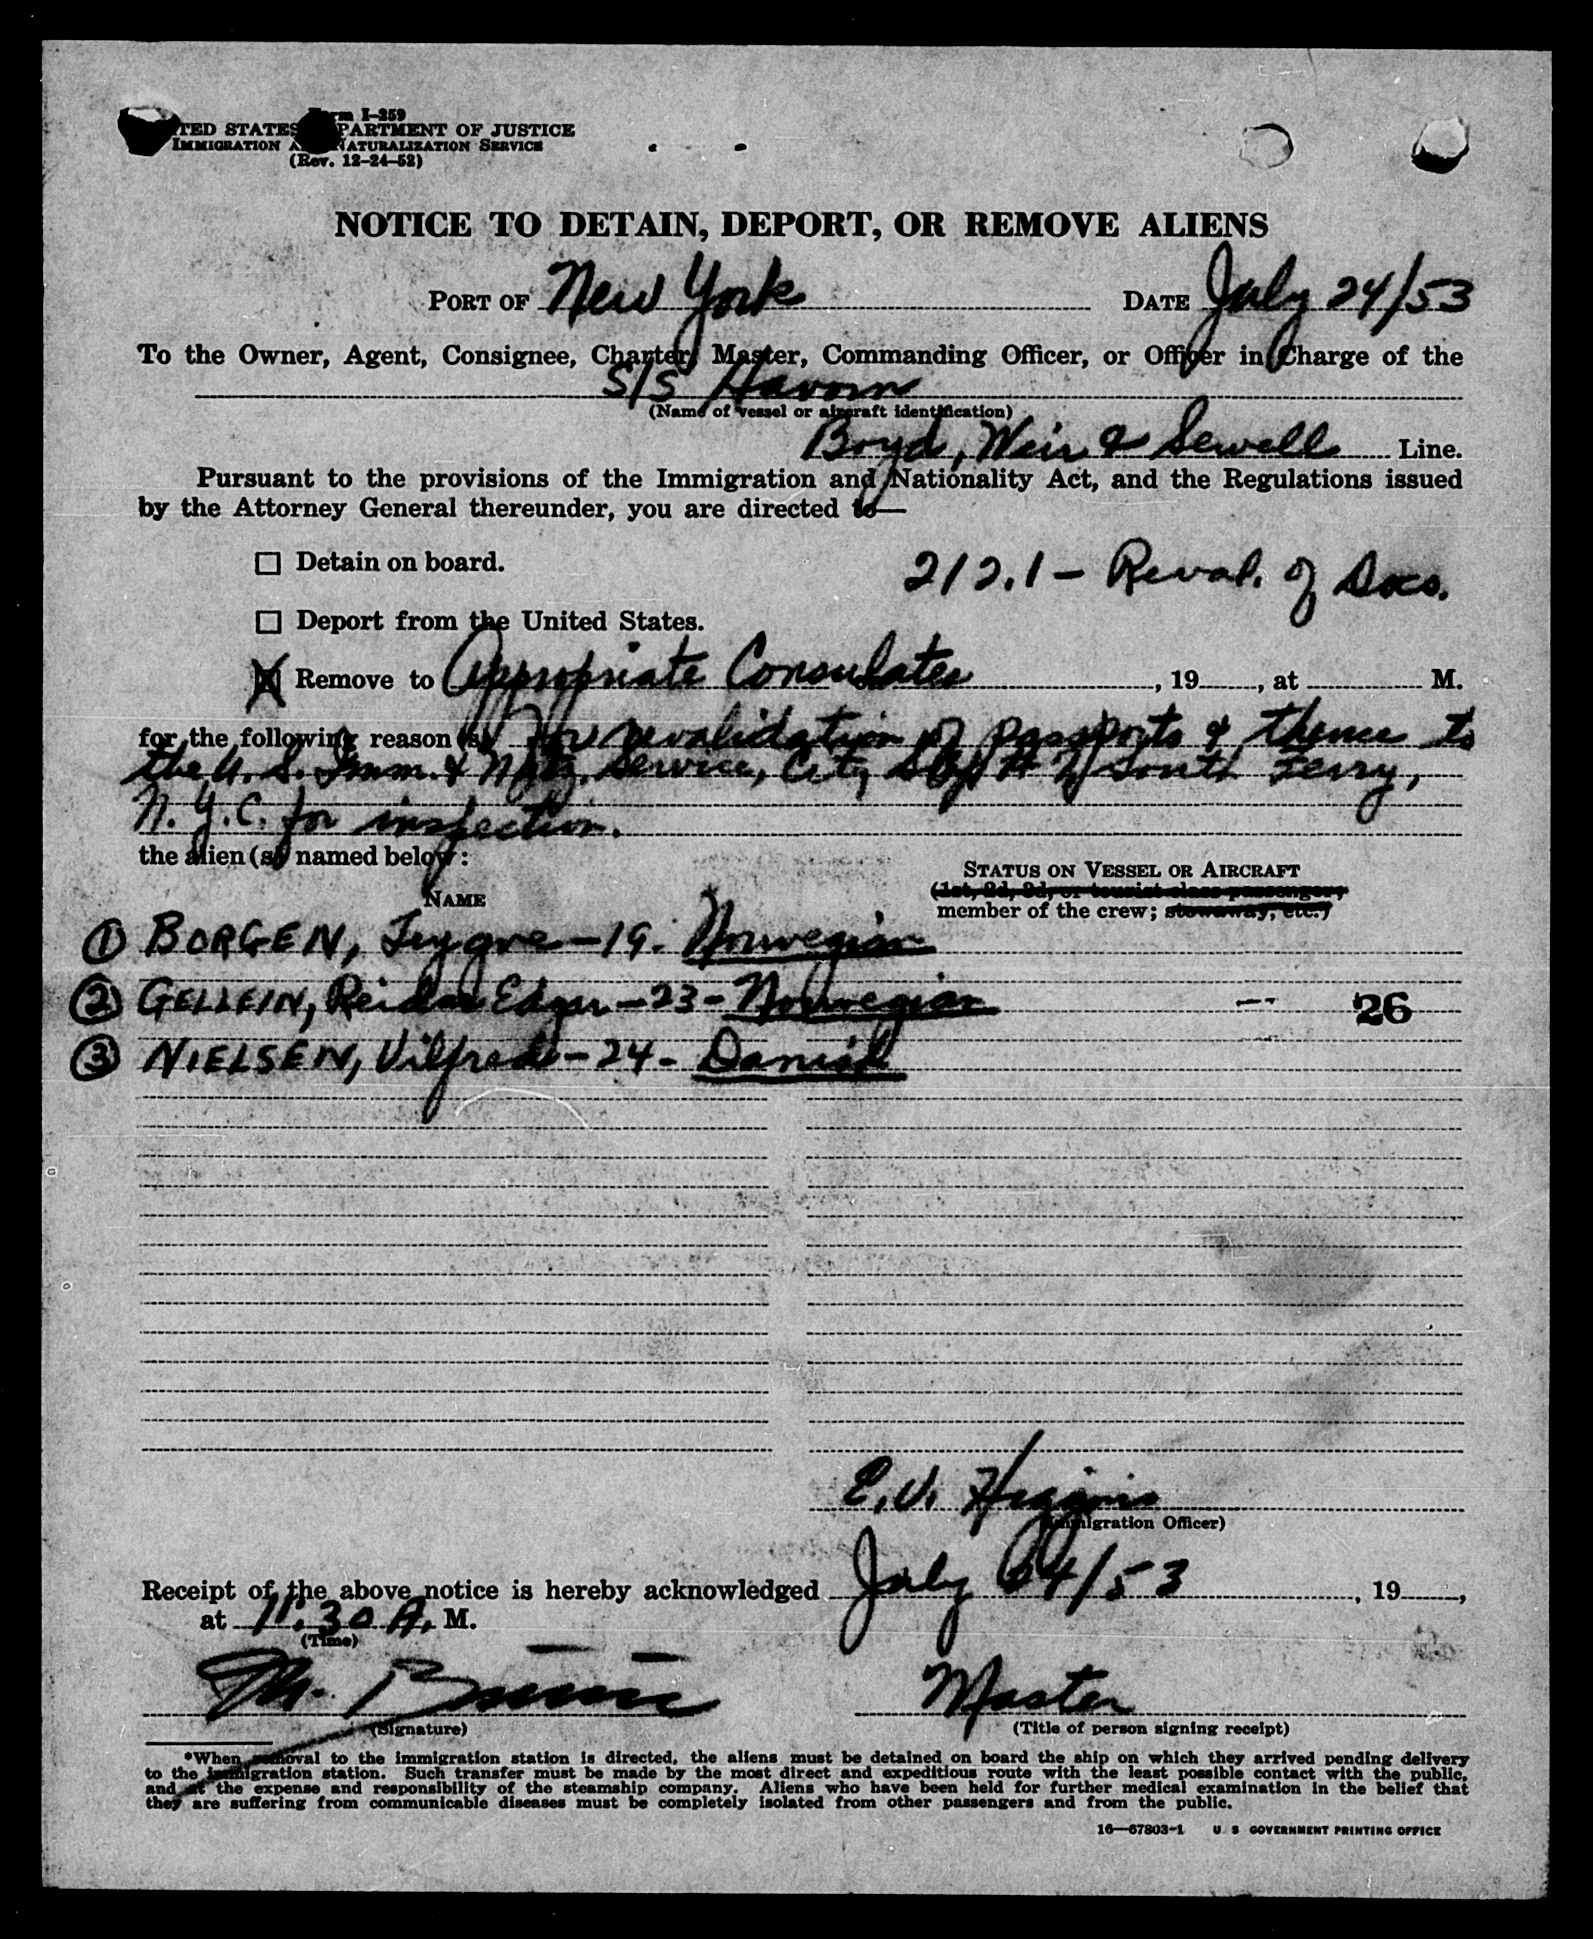 Form I-259
UNITED STATES DEPARTMENT OF JUSTICE
IMMIGRATION AND NATURALIZATION SERVICE
(Rev. 12-24-52)
NOTICE TO DETAIN, DEPORT, OR REMOVE ALIENS
PORT OF New York DATE July 24/53
To the Owner, Agent, Consignee, Charter, Master, Commanding Officer, or Officer in Charge of the
S/S Havorn
(Name of vessel or aircraft identification)
Boyd, Weir & Sewell Line.
Pursuant to the provisions of the Immigration and Nationality Act, and the Regulations issued
by the Attorney General thereunder, you are directed to—
☐ Detain on board.
212.1 - Reval. of Docs.
☐ Deport from the United States.
☒ Remove to Appropriate Consulates, 19, at M.
for the following reason(s) For revalidation of passports & thence to
the U.S. Imm. & Natz. Service, City, South Ferry,
N.Y.C. for inspection.
the alien(s) named below:
NAME
STATUS ON VESSEL OR AIRCRAFT
(1st, 2d, 3d, or tourist class passenger;
member of the crew; stowaway, etc.)
① BORGEN, Trygve - 19. Norwegian
② GELLEIN, Reidar Edgar - 23 - Norwegian 26
③ NIELSEN, Vilfred - 24 - Danish
E.V. Higgins
(Immigration Officer)
Receipt of the above notice is hereby acknowledged July 24/53, 19,
at 11:30 A. M.
(Time)
M.
Master
(Signature)
(Title of person signing receipt)
*When removal to the immigration station is directed, the aliens must be detained on board the ship on which they arrived pending delivery
to the immigration station. Such transfer must be made by the most direct and expeditious route with the least possible contact with the public,
and at the expense and responsibility of the steamship company. Aliens who have been held for further medical examination in the belief that
they are suffering from communicable diseases must be completely isolated from other passengers and from the public.
16—67803-1 U S GOVERNMENT PRINTING OFFICE